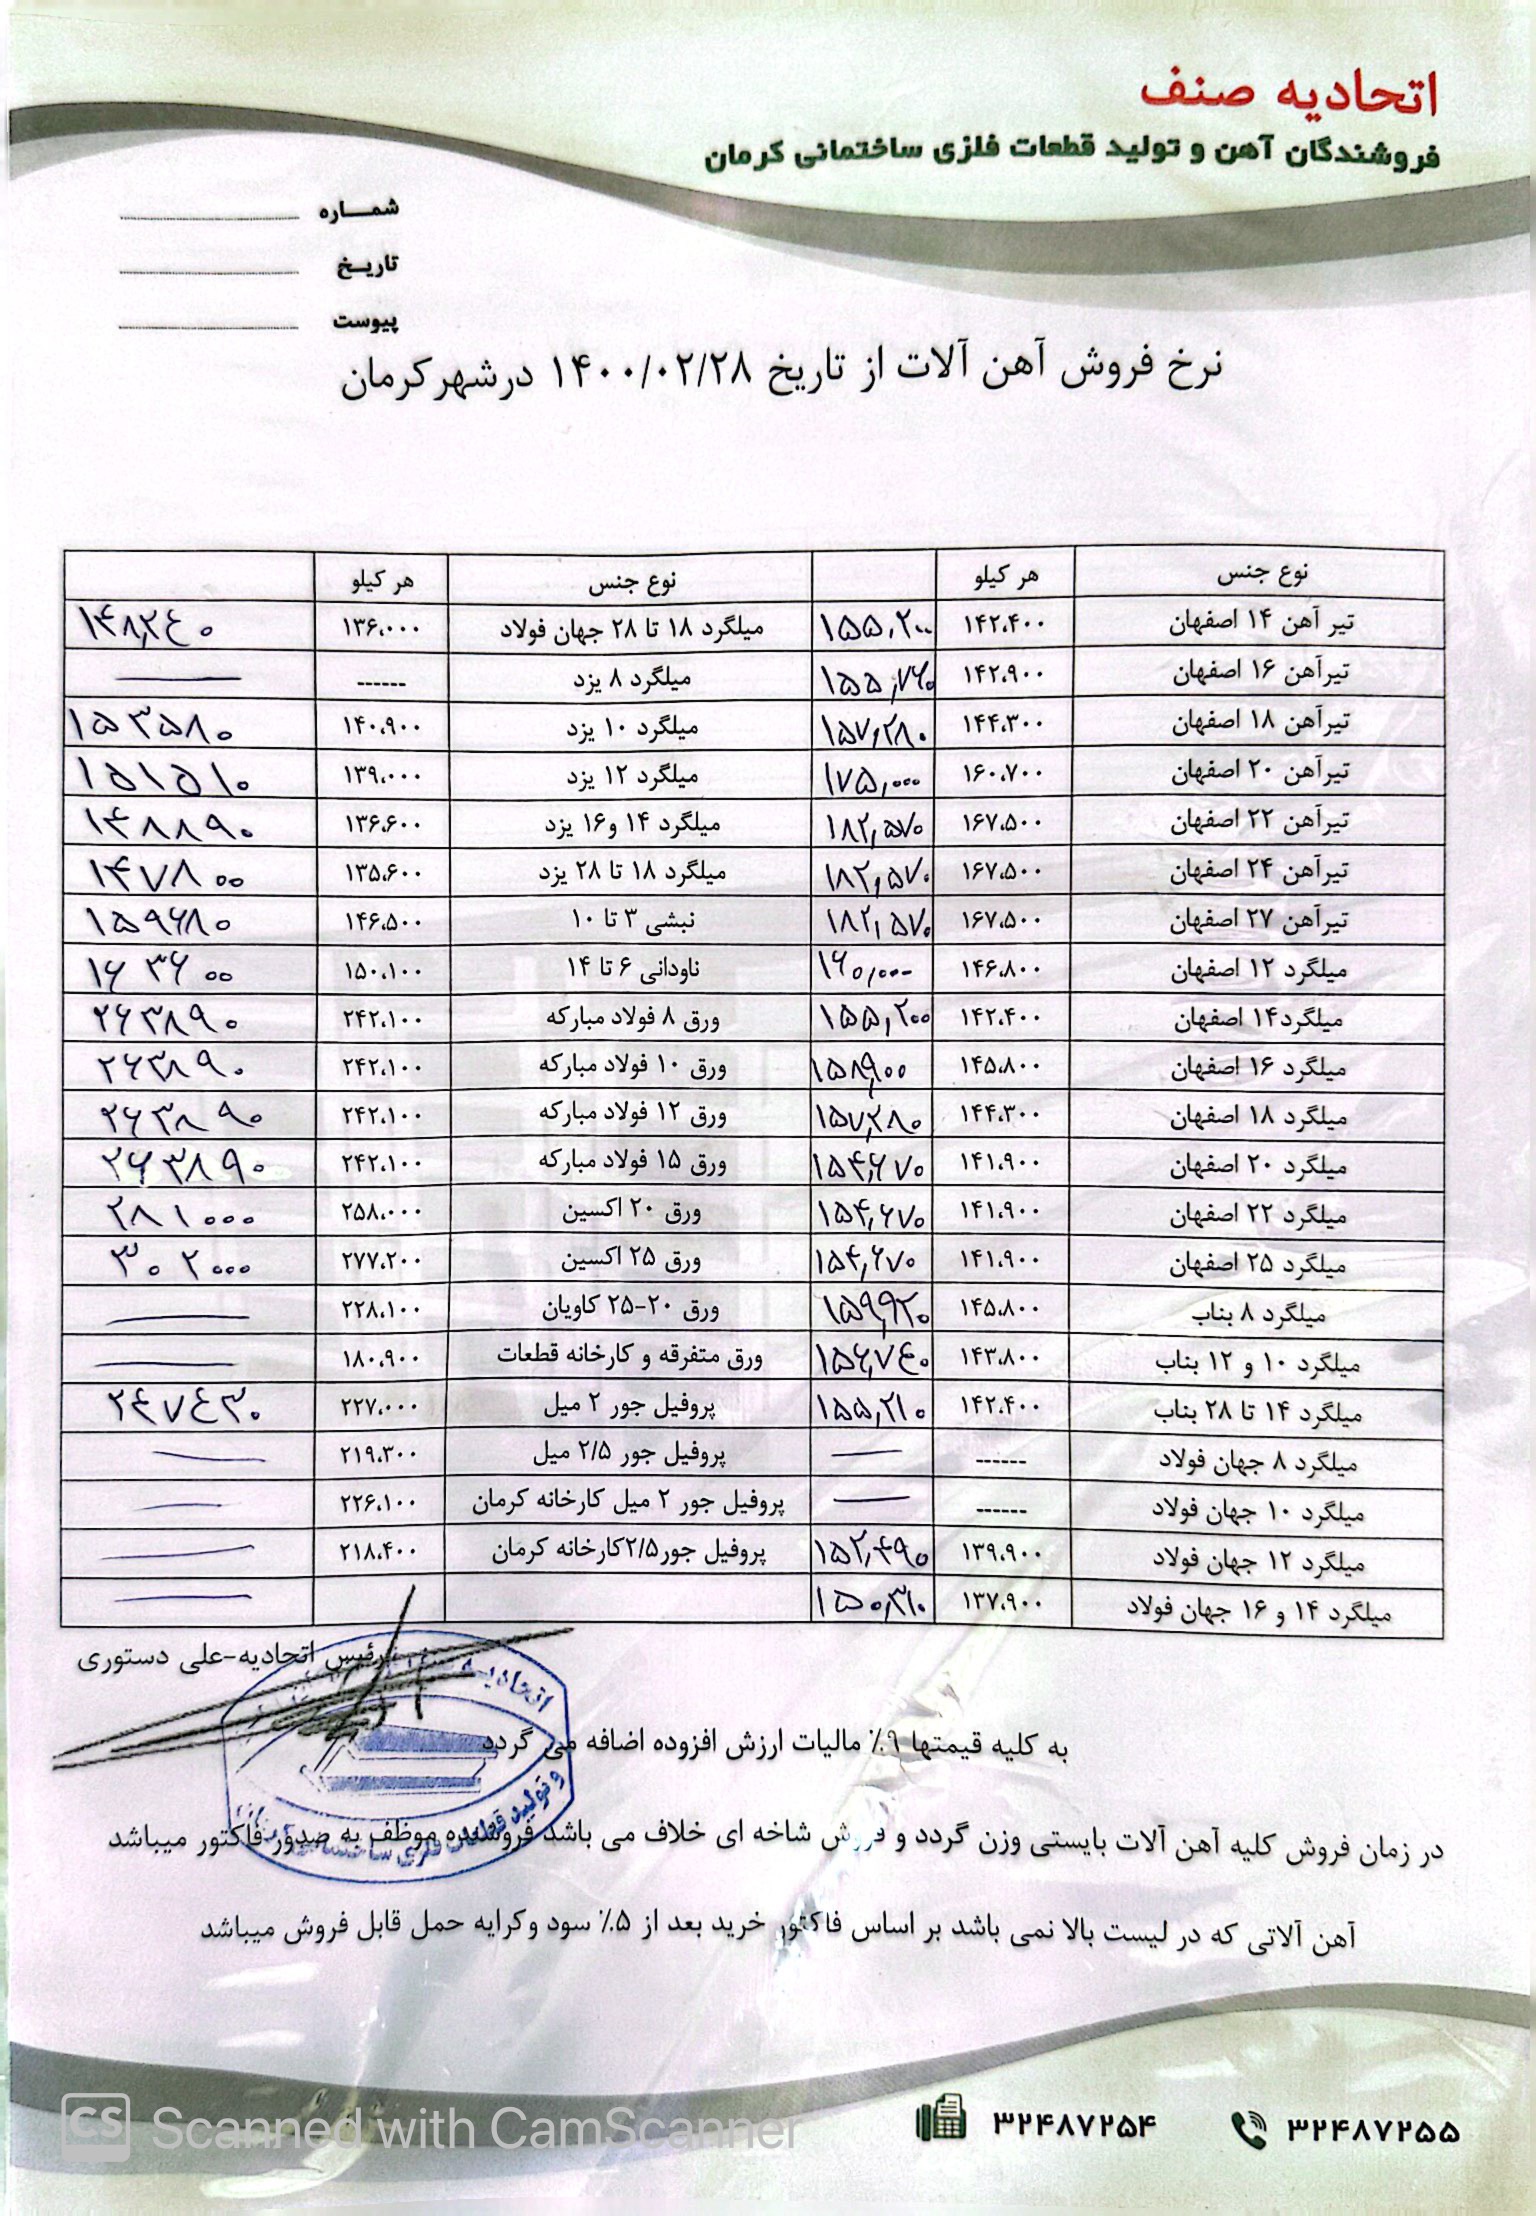 اتحادیه صنف
فروشندگان آهن و تولید قطعات فلزی ساختمانی کرمان
شمــاره
تاریـخ
پیوست
نرخ فروش آهن آلات از تاریخ ۱۴۰۰/۰۲/۲۸ درشهرکرمان
نوع جنس هر کیلو نوع جنس هر کیلو
تیر آهن ۱۴ اصفهان ۱۴۲،۴۰۰ ۱۵۵,۲۰۰ میلگرد ۱۸ تا ۲۸ جهان فولاد ۱۳۶،۰۰۰ ۱۴۸,۲۴۰
تیرآهن ۱۶ اصفهان ۱۴۲،۹۰۰ ۱۵۵,۷۶۰ میلگرد ۸ یزد ------
تیرآهن ۱۸ اصفهان ۱۴۴،۳۰۰ ۱۵۷,۲۸۰ میلگرد ۱۰ یزد ۱۴۰،۹۰۰ ۱۵۳۵۸۰
تیرآهن ۲۰ اصفهان ۱۶۰،۷۰۰ ۱۷۵,۰۰۰ میلگرد ۱۲ یزد ۱۳۹،۰۰۰ ۱۵۱۵۱۰
تیرآهن ۲۲ اصفهان ۱۶۷،۵۰۰ ۱۸۲,۵۷۰ میلگرد ۱۴ و۱۶ یزد ۱۳۶،۶۰۰ ۱۴۸۸۹۰
تیرآهن ۲۴ اصفهان ۱۶۷،۵۰۰ ۱۸۲,۵۷۰ میلگرد ۱۸ تا ۲۸ یزد ۱۳۵،۶۰۰ ۱۴۷۸۰۰
تیرآهن ۲۷ اصفهان ۱۶۷،۵۰۰ ۱۸۲,۵۷۰ نبشی ۳ تا ۱۰ ۱۴۶،۵۰۰ ۱۵۹۶۸۰
میلگرد ۱۲ اصفهان ۱۴۶،۸۰۰ ۱۶۰,۰۰۰ ناودانی ۶ تا ۱۴ ۱۵۰،۱۰۰ ۱۶۳۶۰۰
میلگرد۱۴ اصفهان ۱۴۲،۴۰۰ ۱۵۵,۲۰۰ ورق ۸ فولاد مبارکه ۲۴۲،۱۰۰ ۲۶۳۸۹۰
میلگرد ۱۶ اصفهان ۱۴۵،۸۰۰ ۱۵۸۹,۰۰ ورق ۱۰ فولاد مبارکه ۲۴۲،۱۰۰ ۲۶۳۸۹۰
میلگرد ۱۸ اصفهان ۱۴۴،۳۰۰ ۱۵۷,۲۸۰ ورق ۱۲ فولاد مبارکه ۲۴۲،۱۰۰ ۲۶۳۸۹۰
میلگرد ۲۰ اصفهان ۱۴۱،۹۰۰ ۱۵۴,۶۷۰ ورق ۱۵ فولاد مبارکه ۲۴۲،۱۰۰ ۲۶۳۸۹۰
میلگرد ۲۲ اصفهان ۱۴۱،۹۰۰ ۱۵۴,۶۷۰ ورق ۲۰ اکسین ۲۵۸،۰۰۰ ۲۸۱۰۰۰
میلگرد ۲۵ اصفهان ۱۴۱،۹۰۰ ۱۵۴,۶۷۰ ورق ۲۵ اکسین ۲۷۷،۲۰۰ ۳۰۲۰۰۰
میلگرد ۸ بناب ۱۴۵،۸۰۰ ۱۵۹,۹۲۰ ورق ۲۰-۲۵ کاویان ۲۲۸،۱۰۰
میلگرد ۱۰ و ۱۲ بناب ۱۴۳،۸۰۰ ۱۵۶,۷۴۰ ورق متفرقه و کارخانه قطعات ۱۸۰،۹۰۰
میلگرد ۱۴ تا ۲۸ بناب ۱۴۲،۴۰۰ ۱۵۵,۲۱۰ پروفیل جور ۲ میل ۲۲۷،۰۰۰ ۲۴۷۴۳۰
میلگرد ۸ جهان فولاد ------ پروفیل جور ۲/۵ میل ۲۱۹،۳۰۰
میلگرد ۱۰ جهان فولاد ------ پروفیل جور ۲ میل کارخانه کرمان ۲۲۶،۱۰۰
میلگرد ۱۲ جهان فولاد ۱۳۹،۹۰۰ ۱۵۲,۴۹۰ پروفیل جور۲/۵کارخانه کرمان ۲۱۸،۴۰۰
میلگرد ۱۴ و ۱۶ جهان فولاد ۱۳۷،۹۰۰ ۱۵۰,۳۱۰
رئیس اتحادیه-علی دستوری
اتحادیه
و تولید قطعات فلزی
به کلیه قیمتها ۹٪ مالیات ارزش افزوده اضافه می گردد
در زمان فروش کلیه آهن آلات بایستی وزن گردد و فروش شاخه ای خلاف می باشد فروشنده موظف به صدور فاکتور میباشد
آهن آلاتی که در لیست بالا نمی باشد بر اساس فاکتور خرید بعد از ۵٪ سود وکرایه حمل قابل فروش میباشد
۳۲۴۸۷۲۵۴ ۳۲۴۸۷۲۵۵
CS Scanned with CamScanner